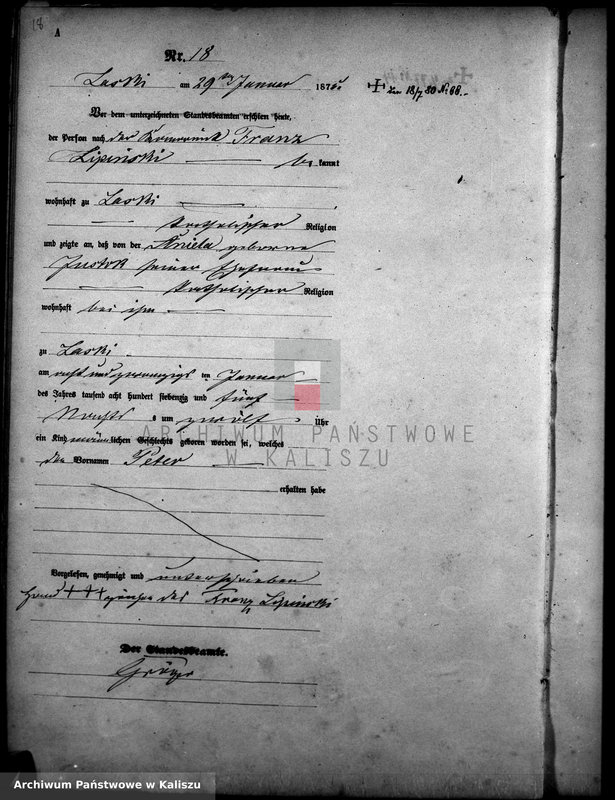 18
A
Nr. 18
Laski am 29ten Januar 1875.
Vor dem unterzeichneten Standesbeamten erschien heute,
der Person nach der Franz
Lipinski — be kannt
wohnhaft zu Laski —
— katholischer Religion
und zeigte an, daß von der Aniela geborene
seiner Ehefrau
— katholischer Religion
wohnhaft bei ihm —
zu Laski
am acht und zwanzigs ten Januar —
des Jahres tausend acht hundert siebenzig und fünf —
Nachts s um zwölf — Uhr
ein Kind männ lichen Geschlechts geboren worden sei, welches
den Vornamen Peter —
erhalten habe
Vorgelesen, genehmigt und unterschrieben
Hand +++ zeichen des Franz Lipinski
Der Standesbeamte.
+ den 18/7 80 No 68.
ARCHIWUM PAŃSTWOWE
W KALISZU
Archiwum Państwowe w Kaliszu